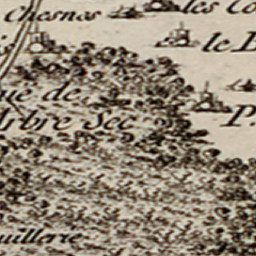 Chesnos
les Co
le B
ue de
Arbre Sec
P.
uillerie